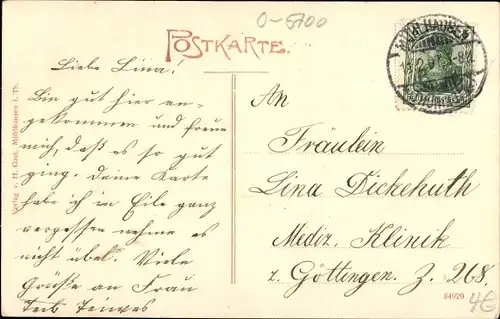 O-5700
POSTKARTE.
MÜHLHAUSEN
Liebe Lina!
Bin gut hier an-
gekommen und freue
mich, daß es so gut
ging. Deine Karte
habe ich in Eile ganz
vergessen nehme es
nicht übel. Viele
Grüße an Frau
An
Fräulein
Lina Dickehuth
Mediz. Klinik
z. Göttingen. Z. 268.
Verlag v. H. Gast, Mühlhausen i. Th.
84929
4€